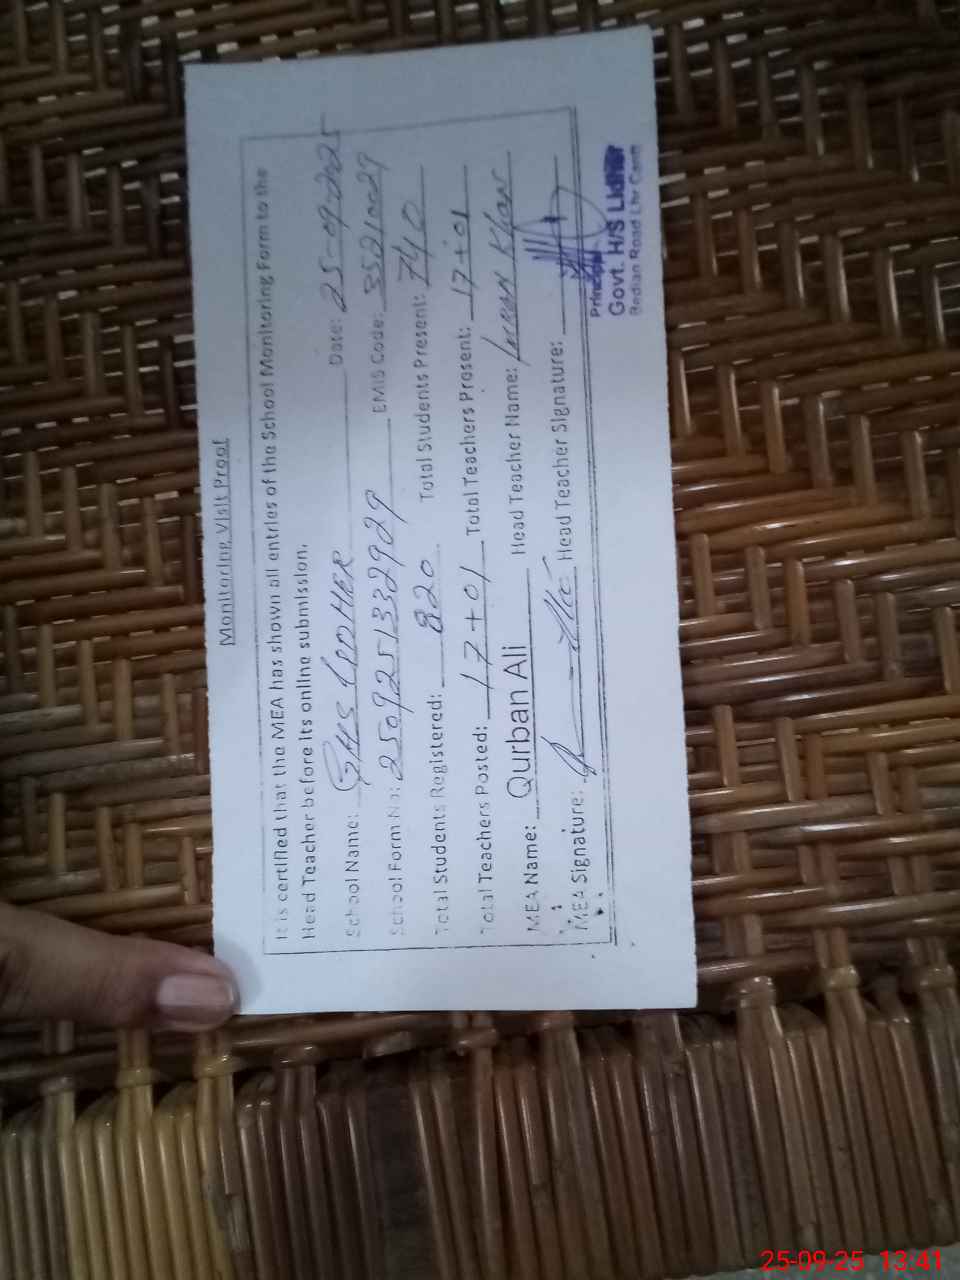 Monitoring Visit Proof
It is certified that the MEA has shown all entries of the School Monitoring Form to the
Head Teacher before its online submission.
School Name: GHS LIDHER Date: 25-09-2025
School Form No: 2509251332929 EMIS Code:
Total Students Registered: 820 Total Students Present: 740
Total Teachers Posted: 17+01 Total Teachers Present: 17+01
MEA Name: Qurban Ali Head Teacher Name: Imran Khan
MEA Signature: Head Teacher Signature:
Principal
Govt. H/S Lidher
Bedian Road Lhr Cantt
25-09-25 13:41